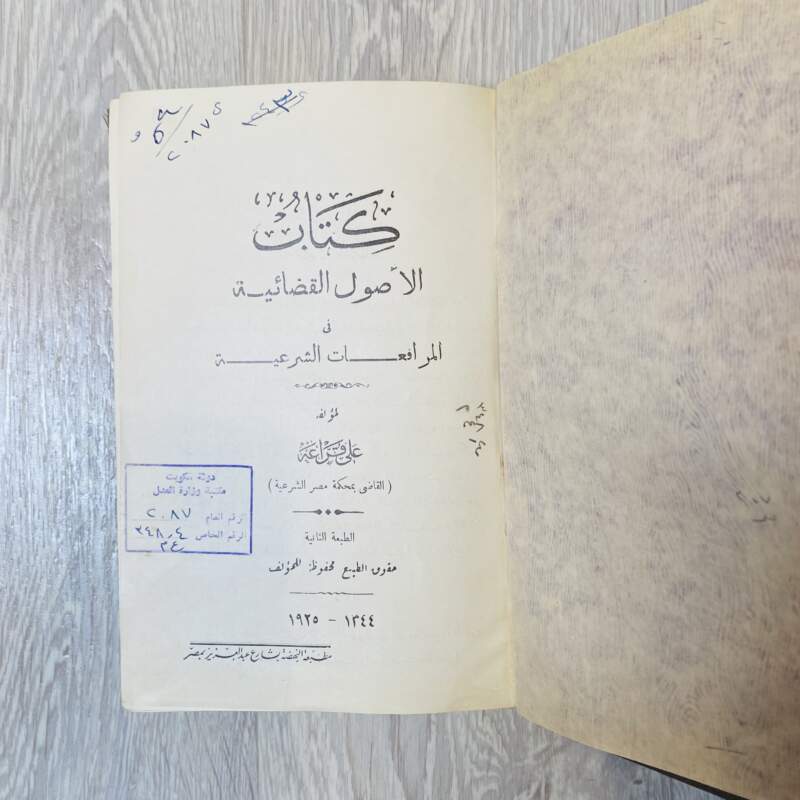 ٢٠٨٧
كتاب
الأصول القضائية
فى
المرافعات الشرعية
لمؤلفه
على قراعه
(القاضى بمحكمة مصر الشرعية)
الطبعة الثانية
حقوق الطبع محفوظة للمؤلف
١٣٤٤ - ١٩٢٥
مطبعة النهضة بشارع عبد العزيز بمصر
دولة الكويت
مكتبة وزارة العدل
الرقم العام ٢٠٨٧
الرقم الخاص ٣٤٨,٤